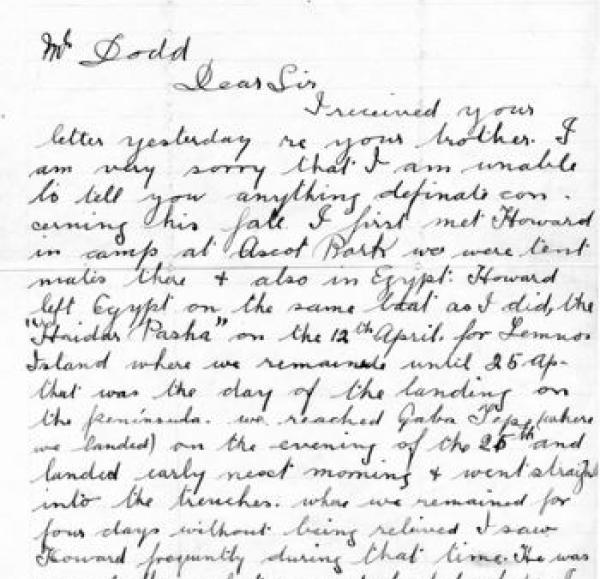 Mr Dodd
Dear Sir
I received your
letter yesterday re your brother. I
am very sorry that I am unable
to tell you anything definate con-
cerning his fate. I first met Howard
in camp at Ascot Park we were tent
mates there & also in Egypt. Howard
left Egypt on the same boat as I did, the
"Haidar Pasha" on the 12th April. for Lemnos
Island where we remained until 25 Ap-
that was the day of the landing on
the peninsula. we reached Gaba Tepe (where
we landed) on the evening of the 25th and
landed early next morning & went straight
into the trenches. where we remained for
four days without being relived I saw
Howard frequently during that time. He was